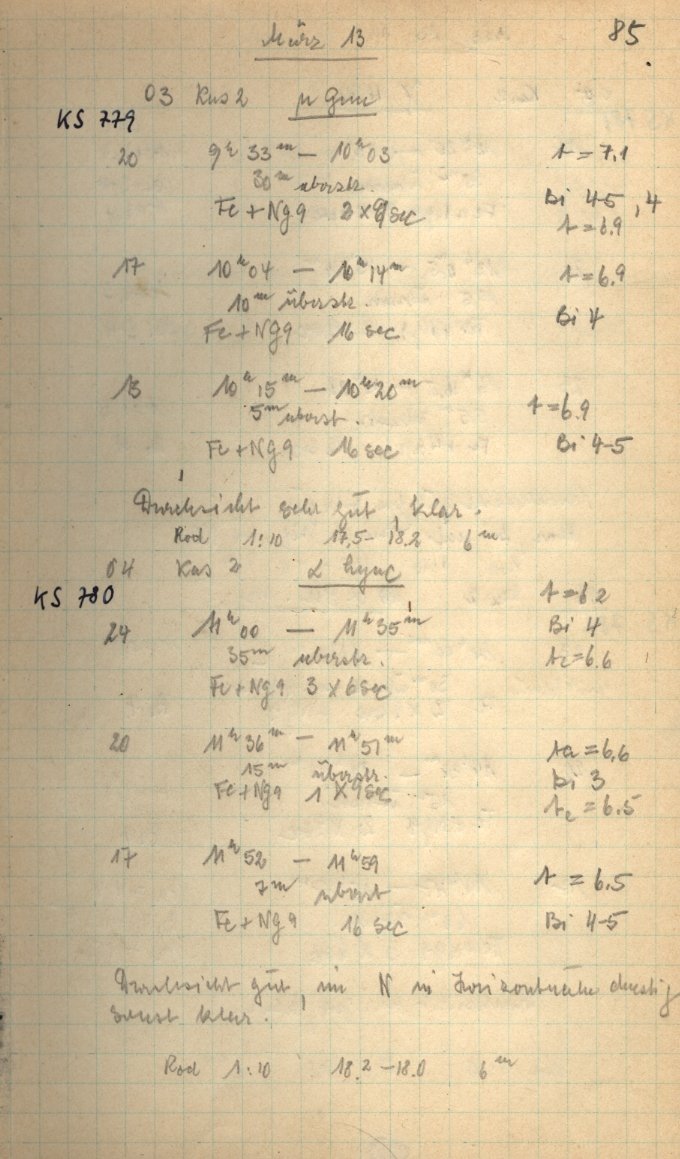 März 13 85
03 Kas 2 μ Gem
KS 779
20 9h 33m — 10h 03 t = 7.1
30m überstr.
Fe + Ng 9 sec Bi 4-5, 4
t = 6.9
17 10h 04 — 10h 14m t = 6.9
10m überstr.
Fe + Ng 9 16 sec Bi 4
13 10h 15m — 10h 20m
5m überst. t = 6.9
Fe + Ng 9 16 sec Bi 4-5
Durchsicht sehr gut, klar.
Rod 1:10 17,5 - 18.2 6m
04 Kas 2 α Lync
KS 780 t = 6.2
24 11h 00 — 11h 35m Bi 4
35m überstr. te = 6.6
Fe + Ng 9 3 x 6 sec
20 11h 36m — 11h 51m ta = 6.6
15m überstr. Bi 3
Fe + Ng 9 1 x 9 sec te = 6.5
17 11h 52 — 11h 59
7m überst t = 6.5
Fe + Ng 9 16 sec Bi 4-5
Durchsicht gut, im N in Horizontnähe dunstig
sonst klar.
Rod 1:10 18.2 - 18.0 6m